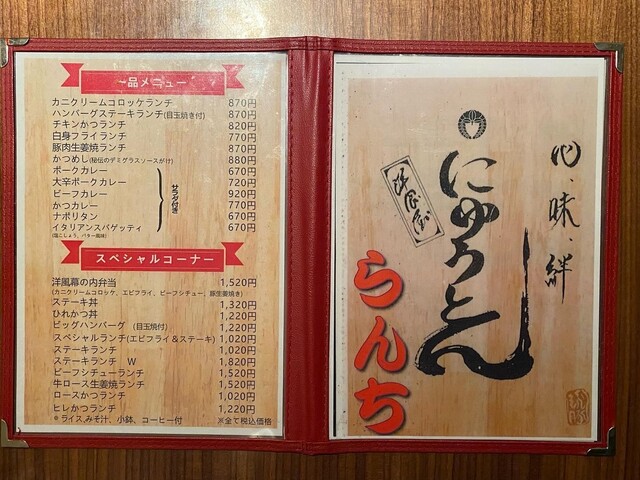 一品メニュー
カニクリームコロッケランチ 870円
ハンバーグステーキランチ(目玉焼き付) 870円
チキンかつランチ 820円
白身フライランチ 770円
豚肉生姜焼ランチ 870円
かつめし(秘伝のデミグラスソースがけ) 880円
ポークカレー 670円
大辛ポークカレー 720円
ビーフカレー 920円
かつカレー 770円
ナポリタン 670円
イタリアンスパゲッティ 670円
(塩こしょう、バター風味)
サラダ付き
スペシャルコーナー
洋風幕の内弁当 1,520円
(カニクリームコロッケ、エビフライ、ビーフシチュー、豚生姜焼き)
ステーキ丼 1,320円
ひれかつ丼 1,220円
ビッグハンバーグ (目玉焼付) 1,220円
スペシャルランチ(エビフライ&ステーキ) 1,020円
ステーキランチ 1,020円
ステーキランチ W 1,820円
ビーフシチューランチ 1,520円
牛ロース生姜焼ランチ 1,520円
ロースかつランチ 1,020円
ヒレかつランチ 1,220円
*ライス,みそ汁、小鉢、コーヒー付 ※全て税込価格
心、味、絆
洋食屋
にゅうとん
らんち